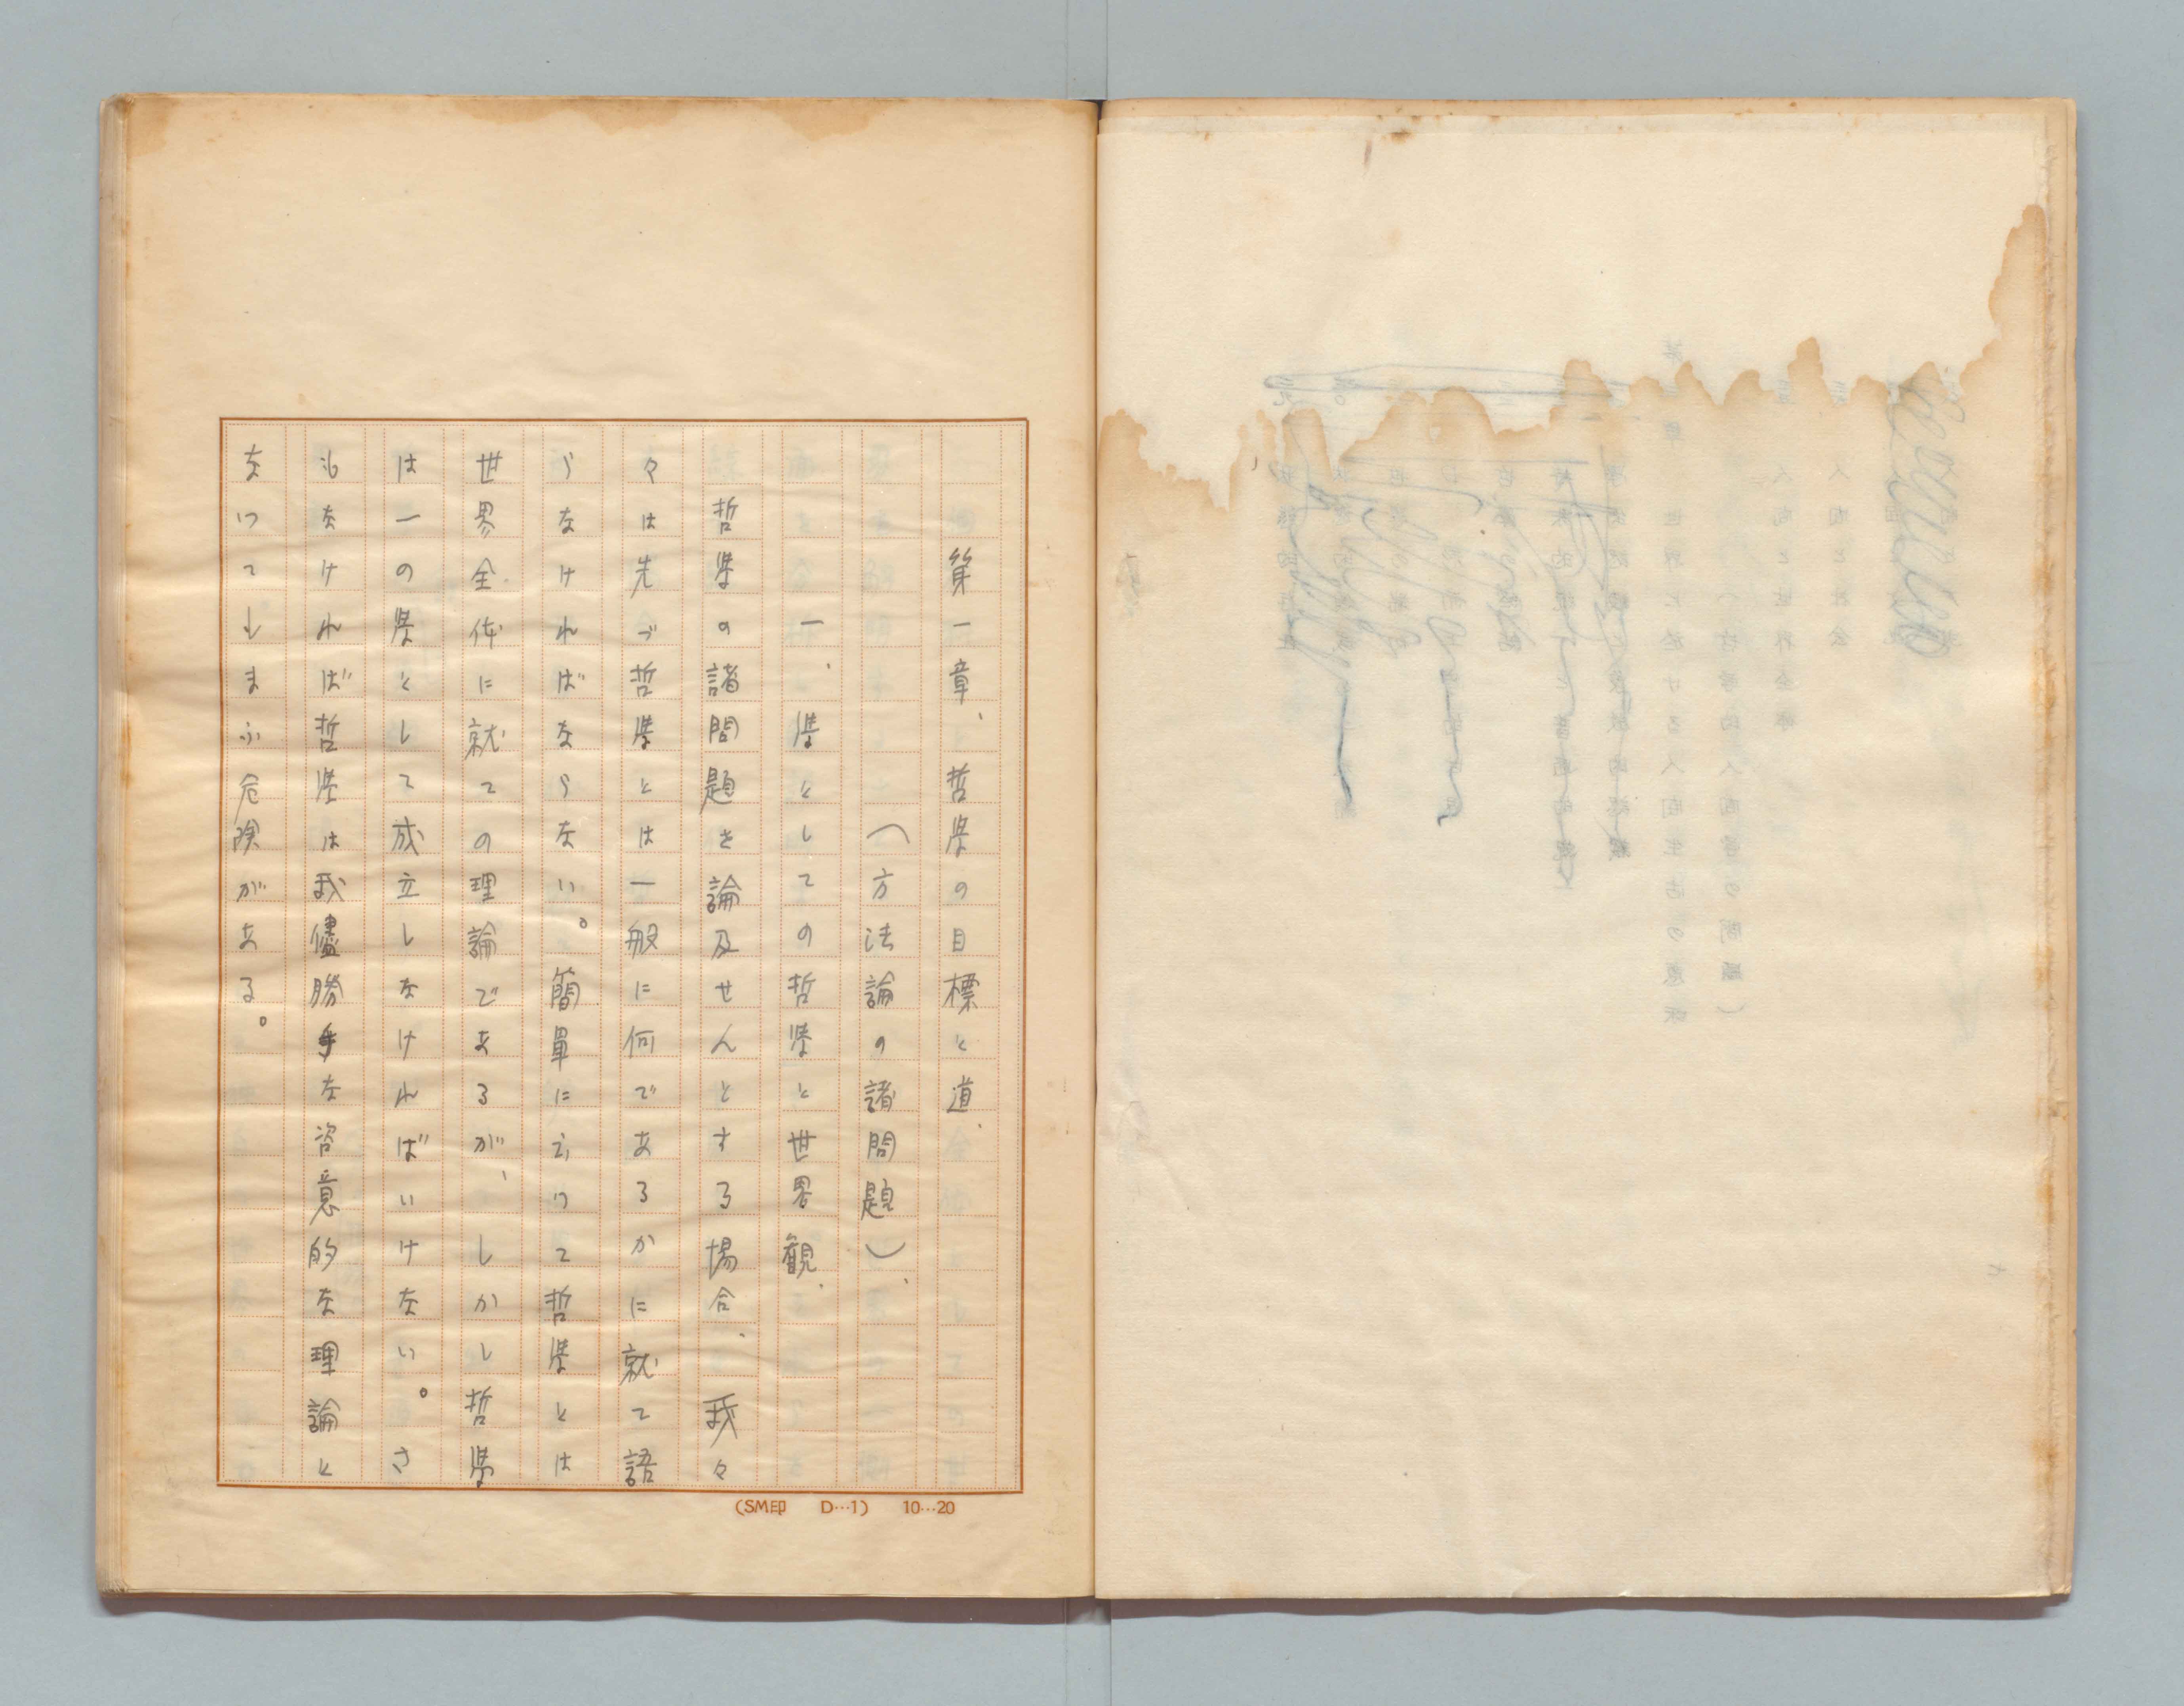 第一章、哲学の目標と道、
（方法論の諸問題）、
一、学としての哲学と世界観、
哲学の諸問題を論及せんとする場合、我々
々は先づ哲学とは一般に何であるかに就て語
らなければならない。簡単に云つて哲学とは
世界全体に就ての理論であるが、しかし哲学
は一の学として成立しなければいけない。さ
もなければ哲学は我儘勝手な恣意的な理論と
なつてしまふ危険がある。
(SM印 D…1) 10…20